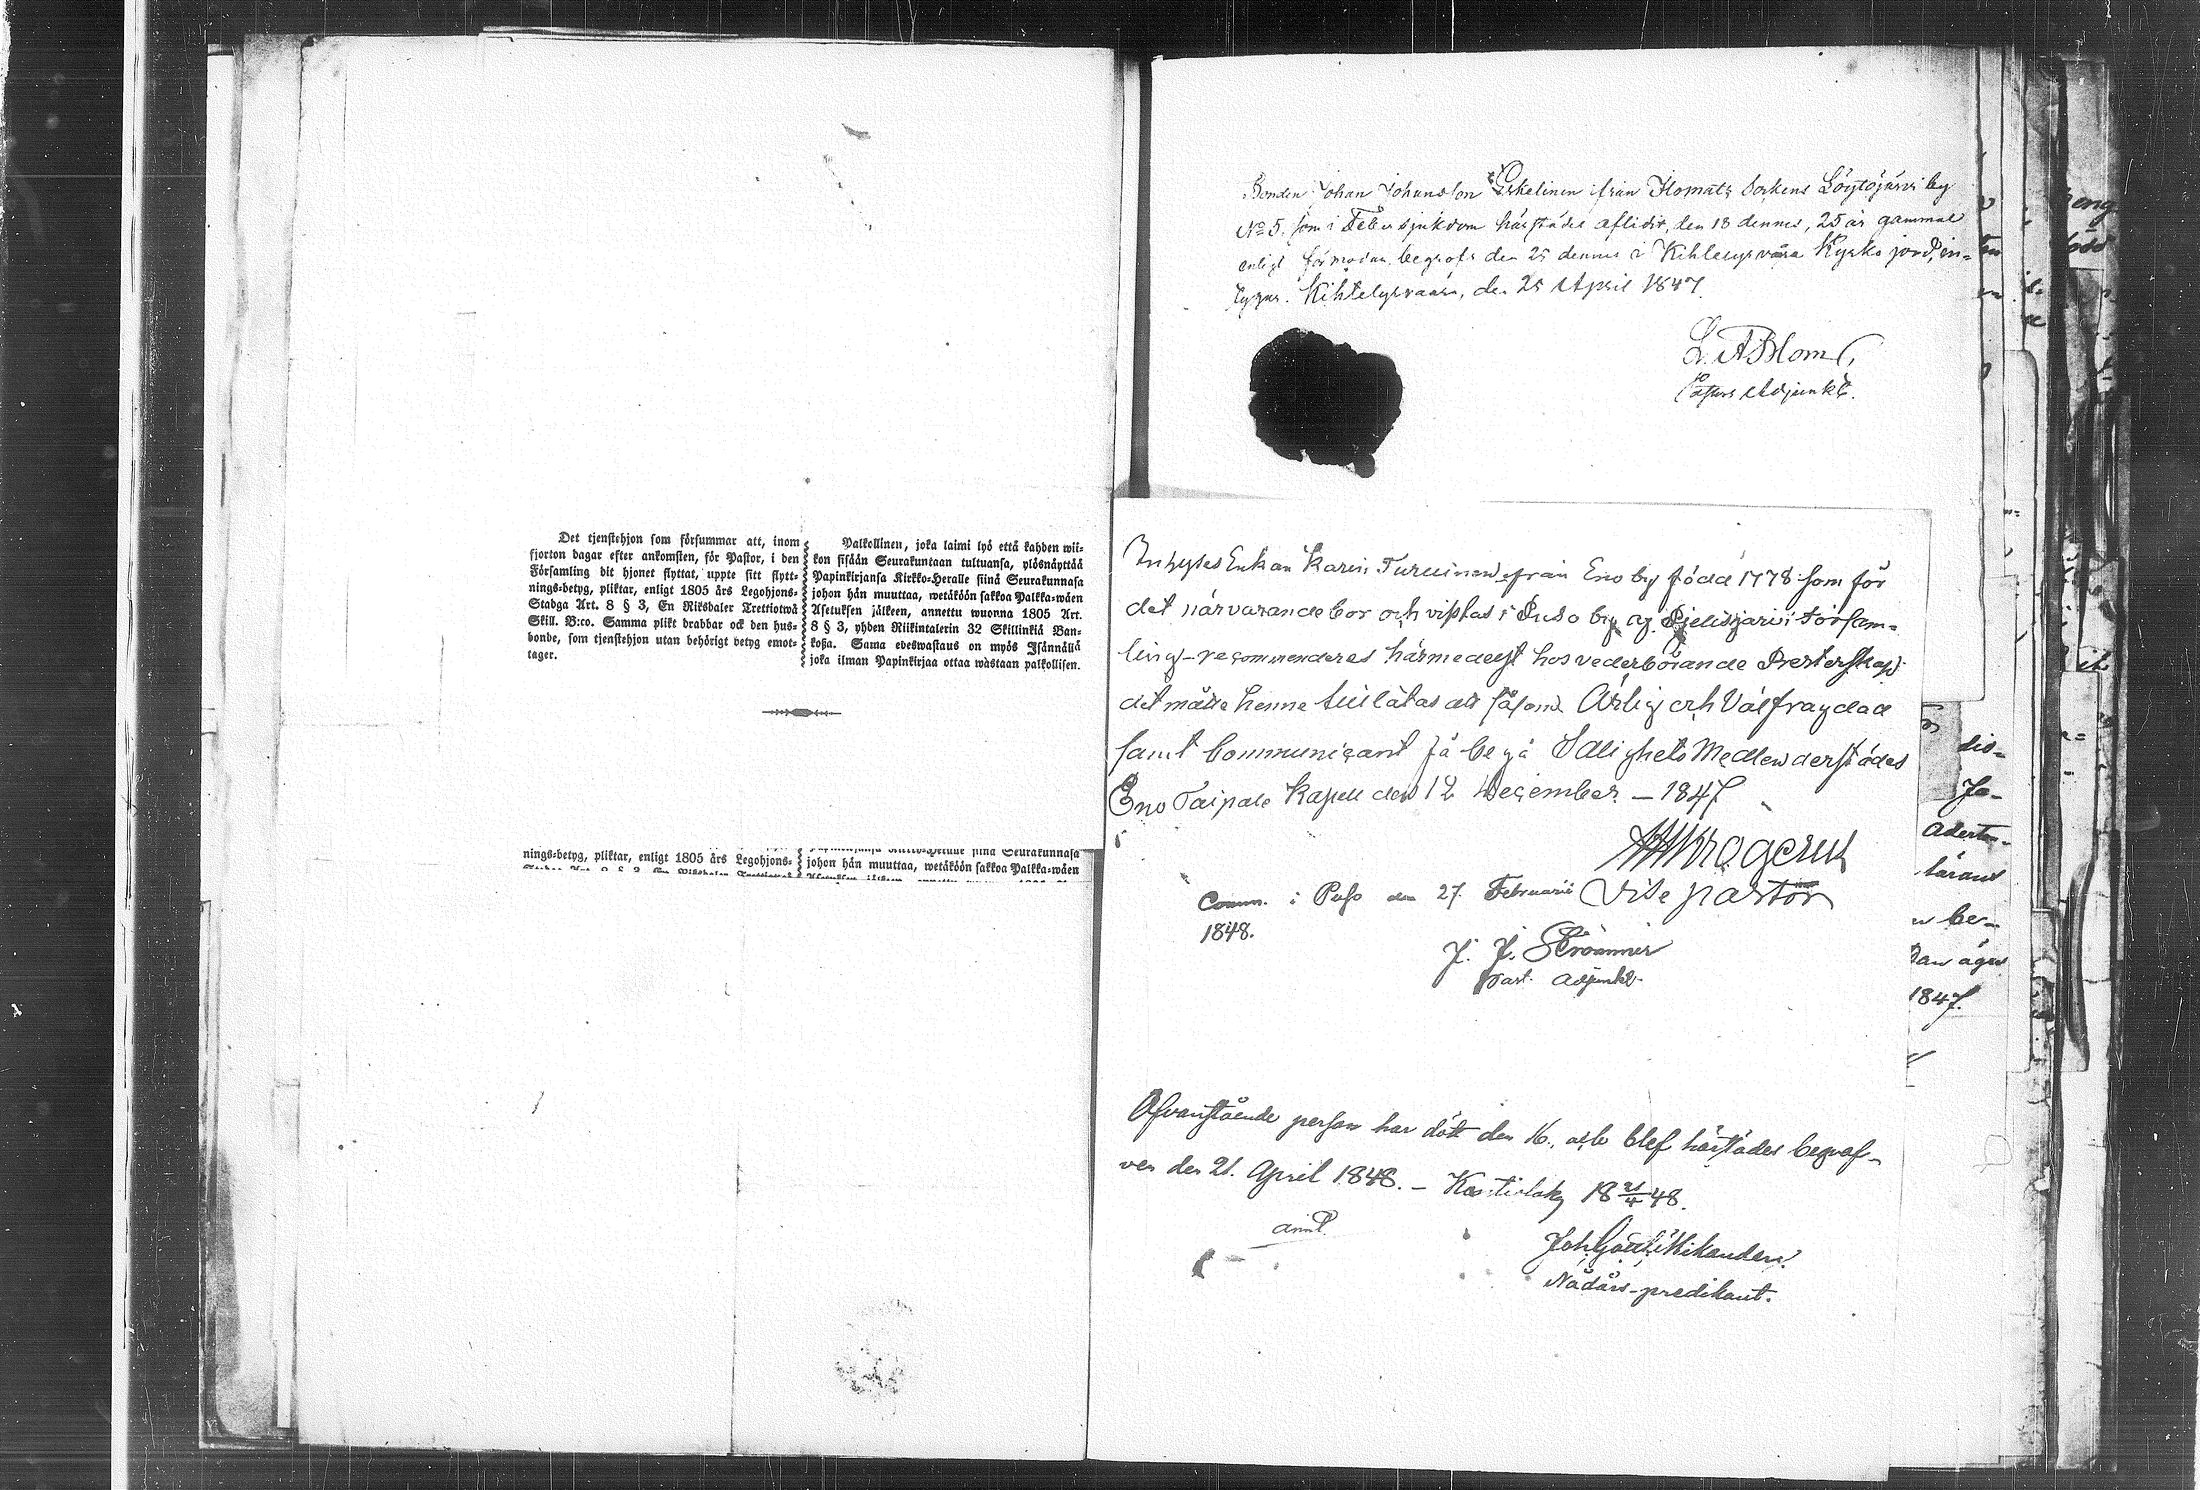 Det tjenstehjon som försummar att, inom
fjorton dagar efter ankomsten, för Pastor, i den
Församling dit hjonet flyttat, uppte sitt flytt-
nings-betyg, pliktar, enligt 1805 års Legohjons-
Stadga Art. 8 § 3, En Riksdaler Trettiotwå
Skill. B:co. Samma plikt drabbar ock den hus-
bonde, som tjenstehjon utan behörigt betyg emot-
tager.
Palkollinen, joka laimi lyö että kahden wii-
kon sisään Seurakuntaan tultuansa, ylösnäyttää
Papinkirjansa Kirkko-Heralle siinä Seurakunnasa
johon hän muuttaa, wetäköön sakkoa Palkka-wäen
Asetuksen jälkeen, annettu wuonna 1805 Art.
8 § 3, yhden Riikintalerin 32 Skillinkiä Ban-
koßa. Sama edeswastaus on myös Isännällä
joka ilman Papinkirjaa ottaa wastaan palkollisen.
nings-betyg, pliktar, enligt 1805 års Legohjons-
johon hän muuttaa, wetäköön sakkoa Palkka-wäen
Bonden Johan Johansson Eskelinen ifrån Ilomants Sockens Löytöjärvi by
No 5. som i Feber sjukdom härstädes aflidit, den 18 dennes, 25 år gammal
enligt förmodan, begrofs den 25 dennes i Kihtelysvaara Kyrko jord, in-
tygar. Kihtelysvaara, den 25 April 1847.
L. A Blom
Pastors Adjunkt.
Inhyses Enkan Karin Turuinen från Eno by född 1778 som för
det närvarande bor och vistas i Puso by af Pjelisjärvi Försam-
ling - recommenderas härmedelst hos vederbörande Presterskap
det måtte henne tillåtas att såsom Ärlig och Välfrägdad
samt Communicant få begå Salighets Medlen derstädes
Eno Taipale Kapell den 12 December - 1847
Krogerus
Vise pastor
Comm. i Puso den 27. Februarii
1848.
J. J. Strömmer
Past. Adjunkt.
Ofvanstående person har dött den 16. och blef härstädes begraf-
ven den 21. April 1848. - Kontiolaks 18 21/4 48.
Joh. Gottl. Mikander.
Nådårs-predikant.
dis-
be-
1847.